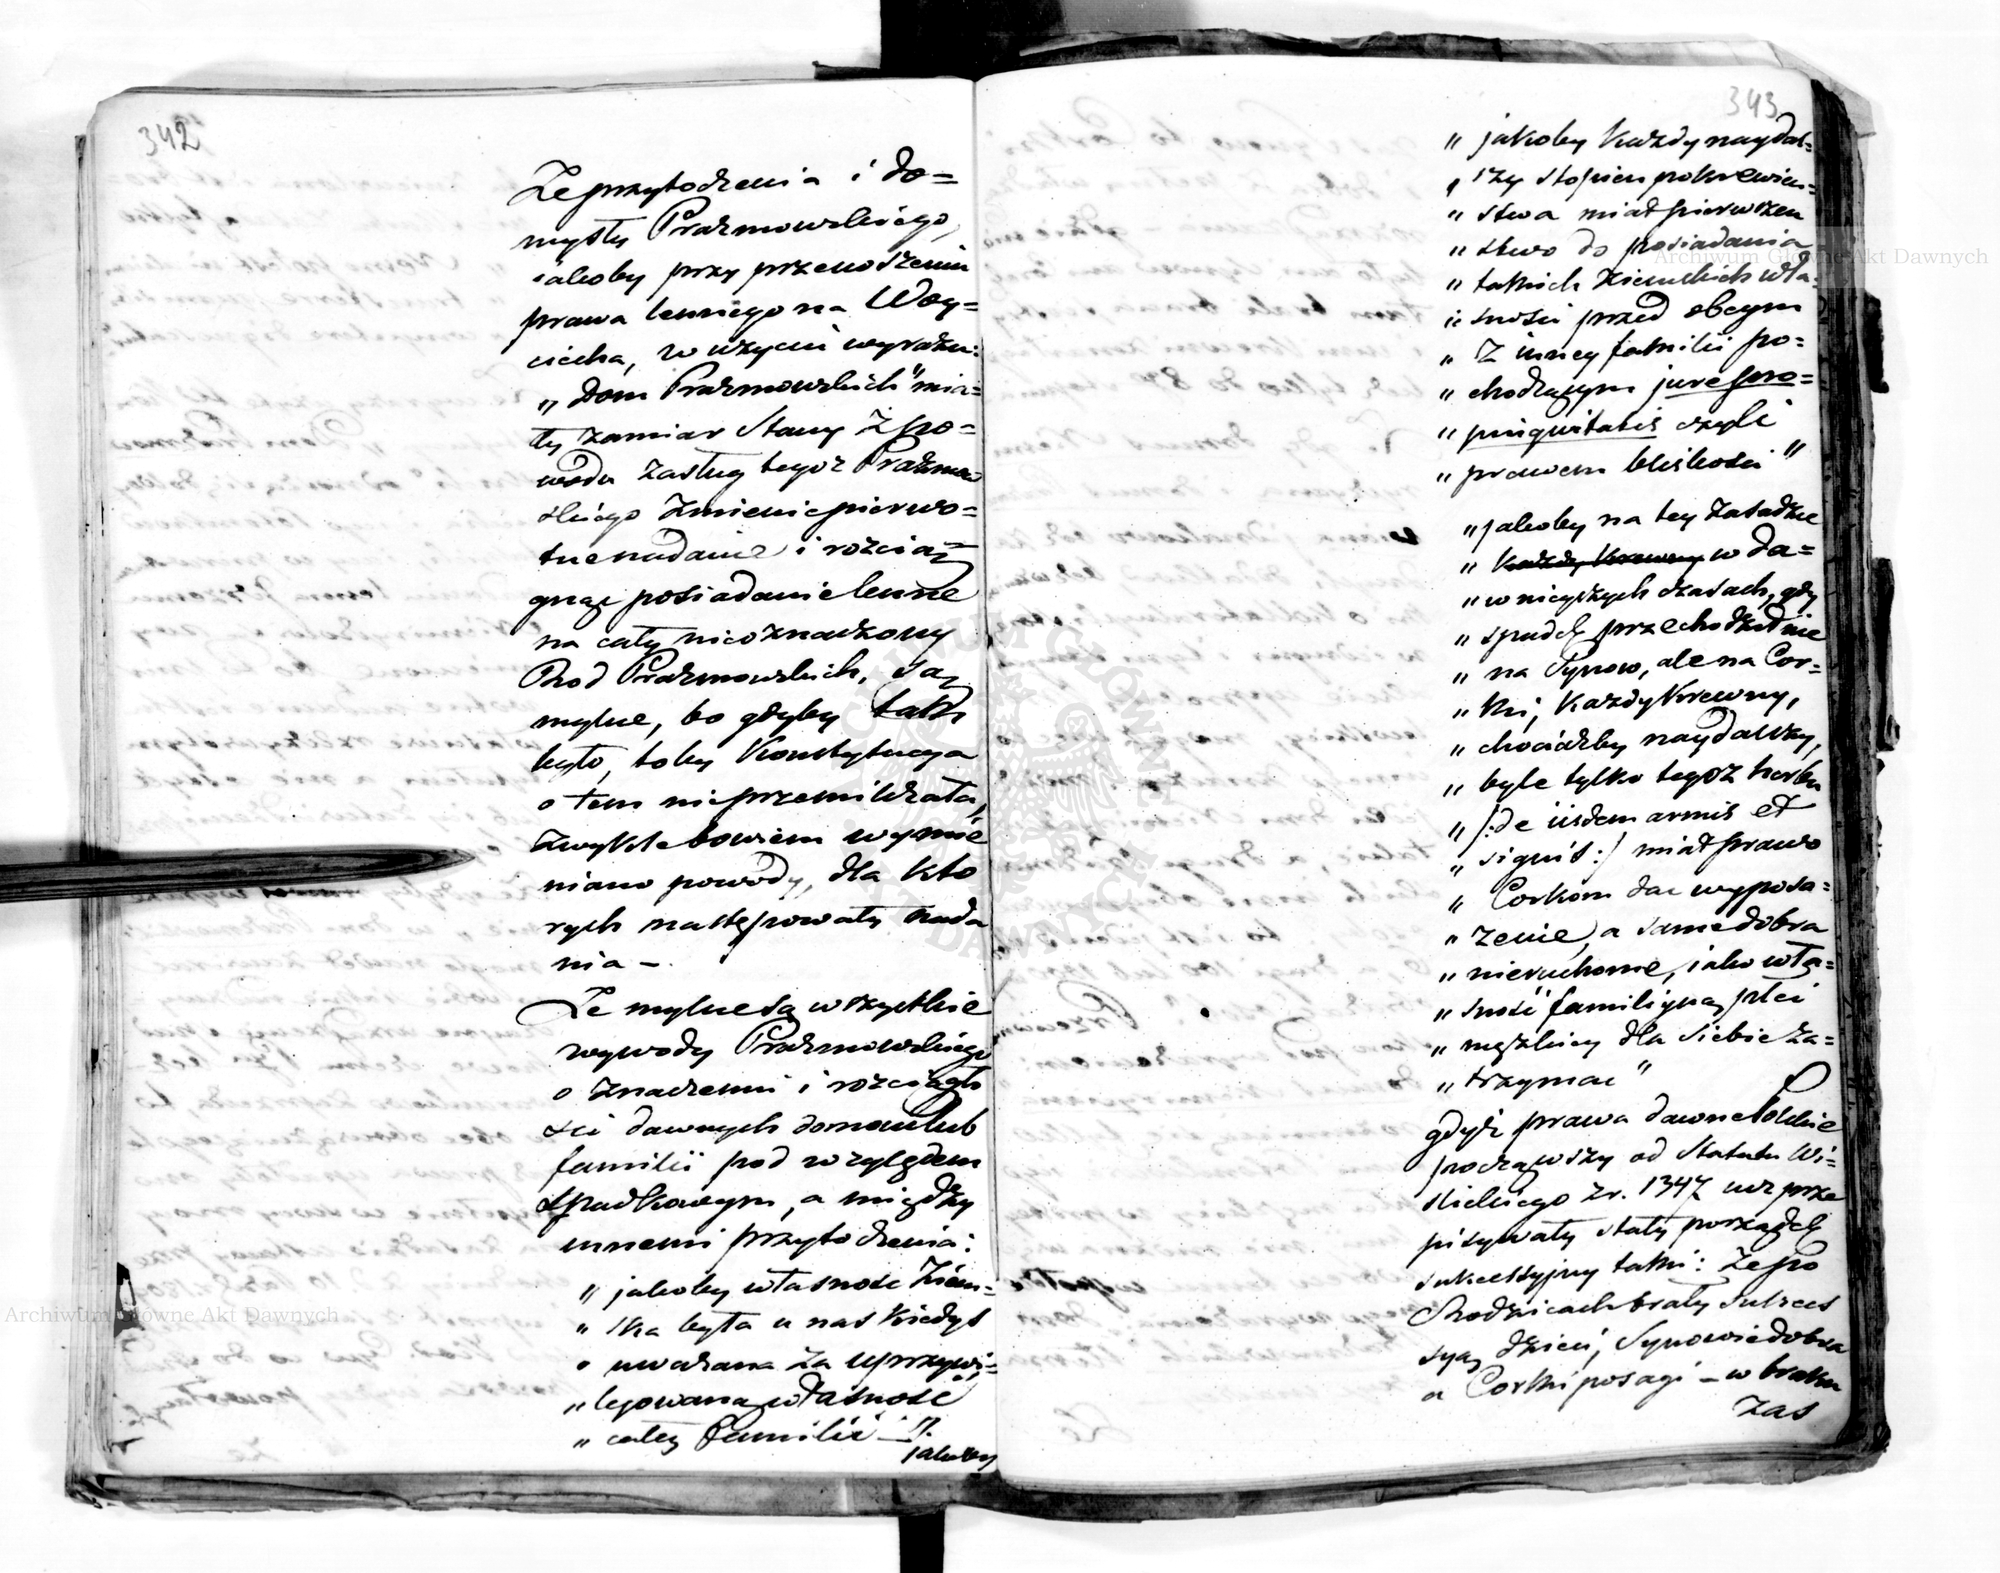 342
Ze przytoczenia i do=
mysły Prażmowskiego,
iakoby przy przenoszeniu
prawa lennego na Woy=
ciecha, w użyciu wyrazu:
„Dom Prażmowskich" mia=
ły zamiar Stany z po=
wodu zasług tegoż Prażmow
skiego zmienić pierwo=
tne nadanie i rozcią=
gnąć posiadanie lenne
na cały nieoznaczony
Rod Prażmowskich, są
mylne, bo gdyby tak
było, toby Konstytucya
o tem nie przemilczała,
zwykle bowiem wymie
niano powody, dla kto
rych następowały nada
nia —.
Ze mylne są wszystkie
wywody Prażmowskiego
o znaczeniu i rozciągło
ści dawnych domow lub
familii pod względem
spadkowym, a między
innemi przytoczenia:
„ jakoby własność Ziem=
„ ska była u nas kiedyś
„ uważana za uprzywi=
„ lejowaną własność
„ całey Familii —".
jakoby
343
„ jakoby każdy naydal=
„ szy stopień pokrewień=
„ stwa miał pierwszeń
„ stwo do posiadania
„ takich Ziemskich wła=
„ sności przed obcym
„ z inney familii po=
„ chodzącym jure pro=
„ pinquitatis czyli
„ prawem bliskości "
„ jakoby na tey zasadzie
„ każdy krewny w da=
„ wnieyszych czasach, gdy
„ spadek przechodził nie
„ na Synow, ale na Cor=
„ ki, każdy krewny,
„ chociażby naydalszy,
„ byle tylko tegoż herbu
„ /:de iisdem armis et
„ signis:/ miał prawo
„ Corkom dać wyposa=
„ żenie, a same dobra
„ nieruchome, jako wła=
„ sność familiyną płci
„ męzkiey dla siebie za=
„ trzymać "
gdyż prawa dawne Polskie
począwszy od Statutu Wi=
ślickiego z r. 1347 już prze
pisywały stały porządek
sukcessyjny taki: że po
Rodzicach brały sukces
syą dzieci, Synowie dobra
a Corki posagi — w braku
zaś
Archiwum Główne Akt Dawnych
Archiwum Główne Akt Dawnych